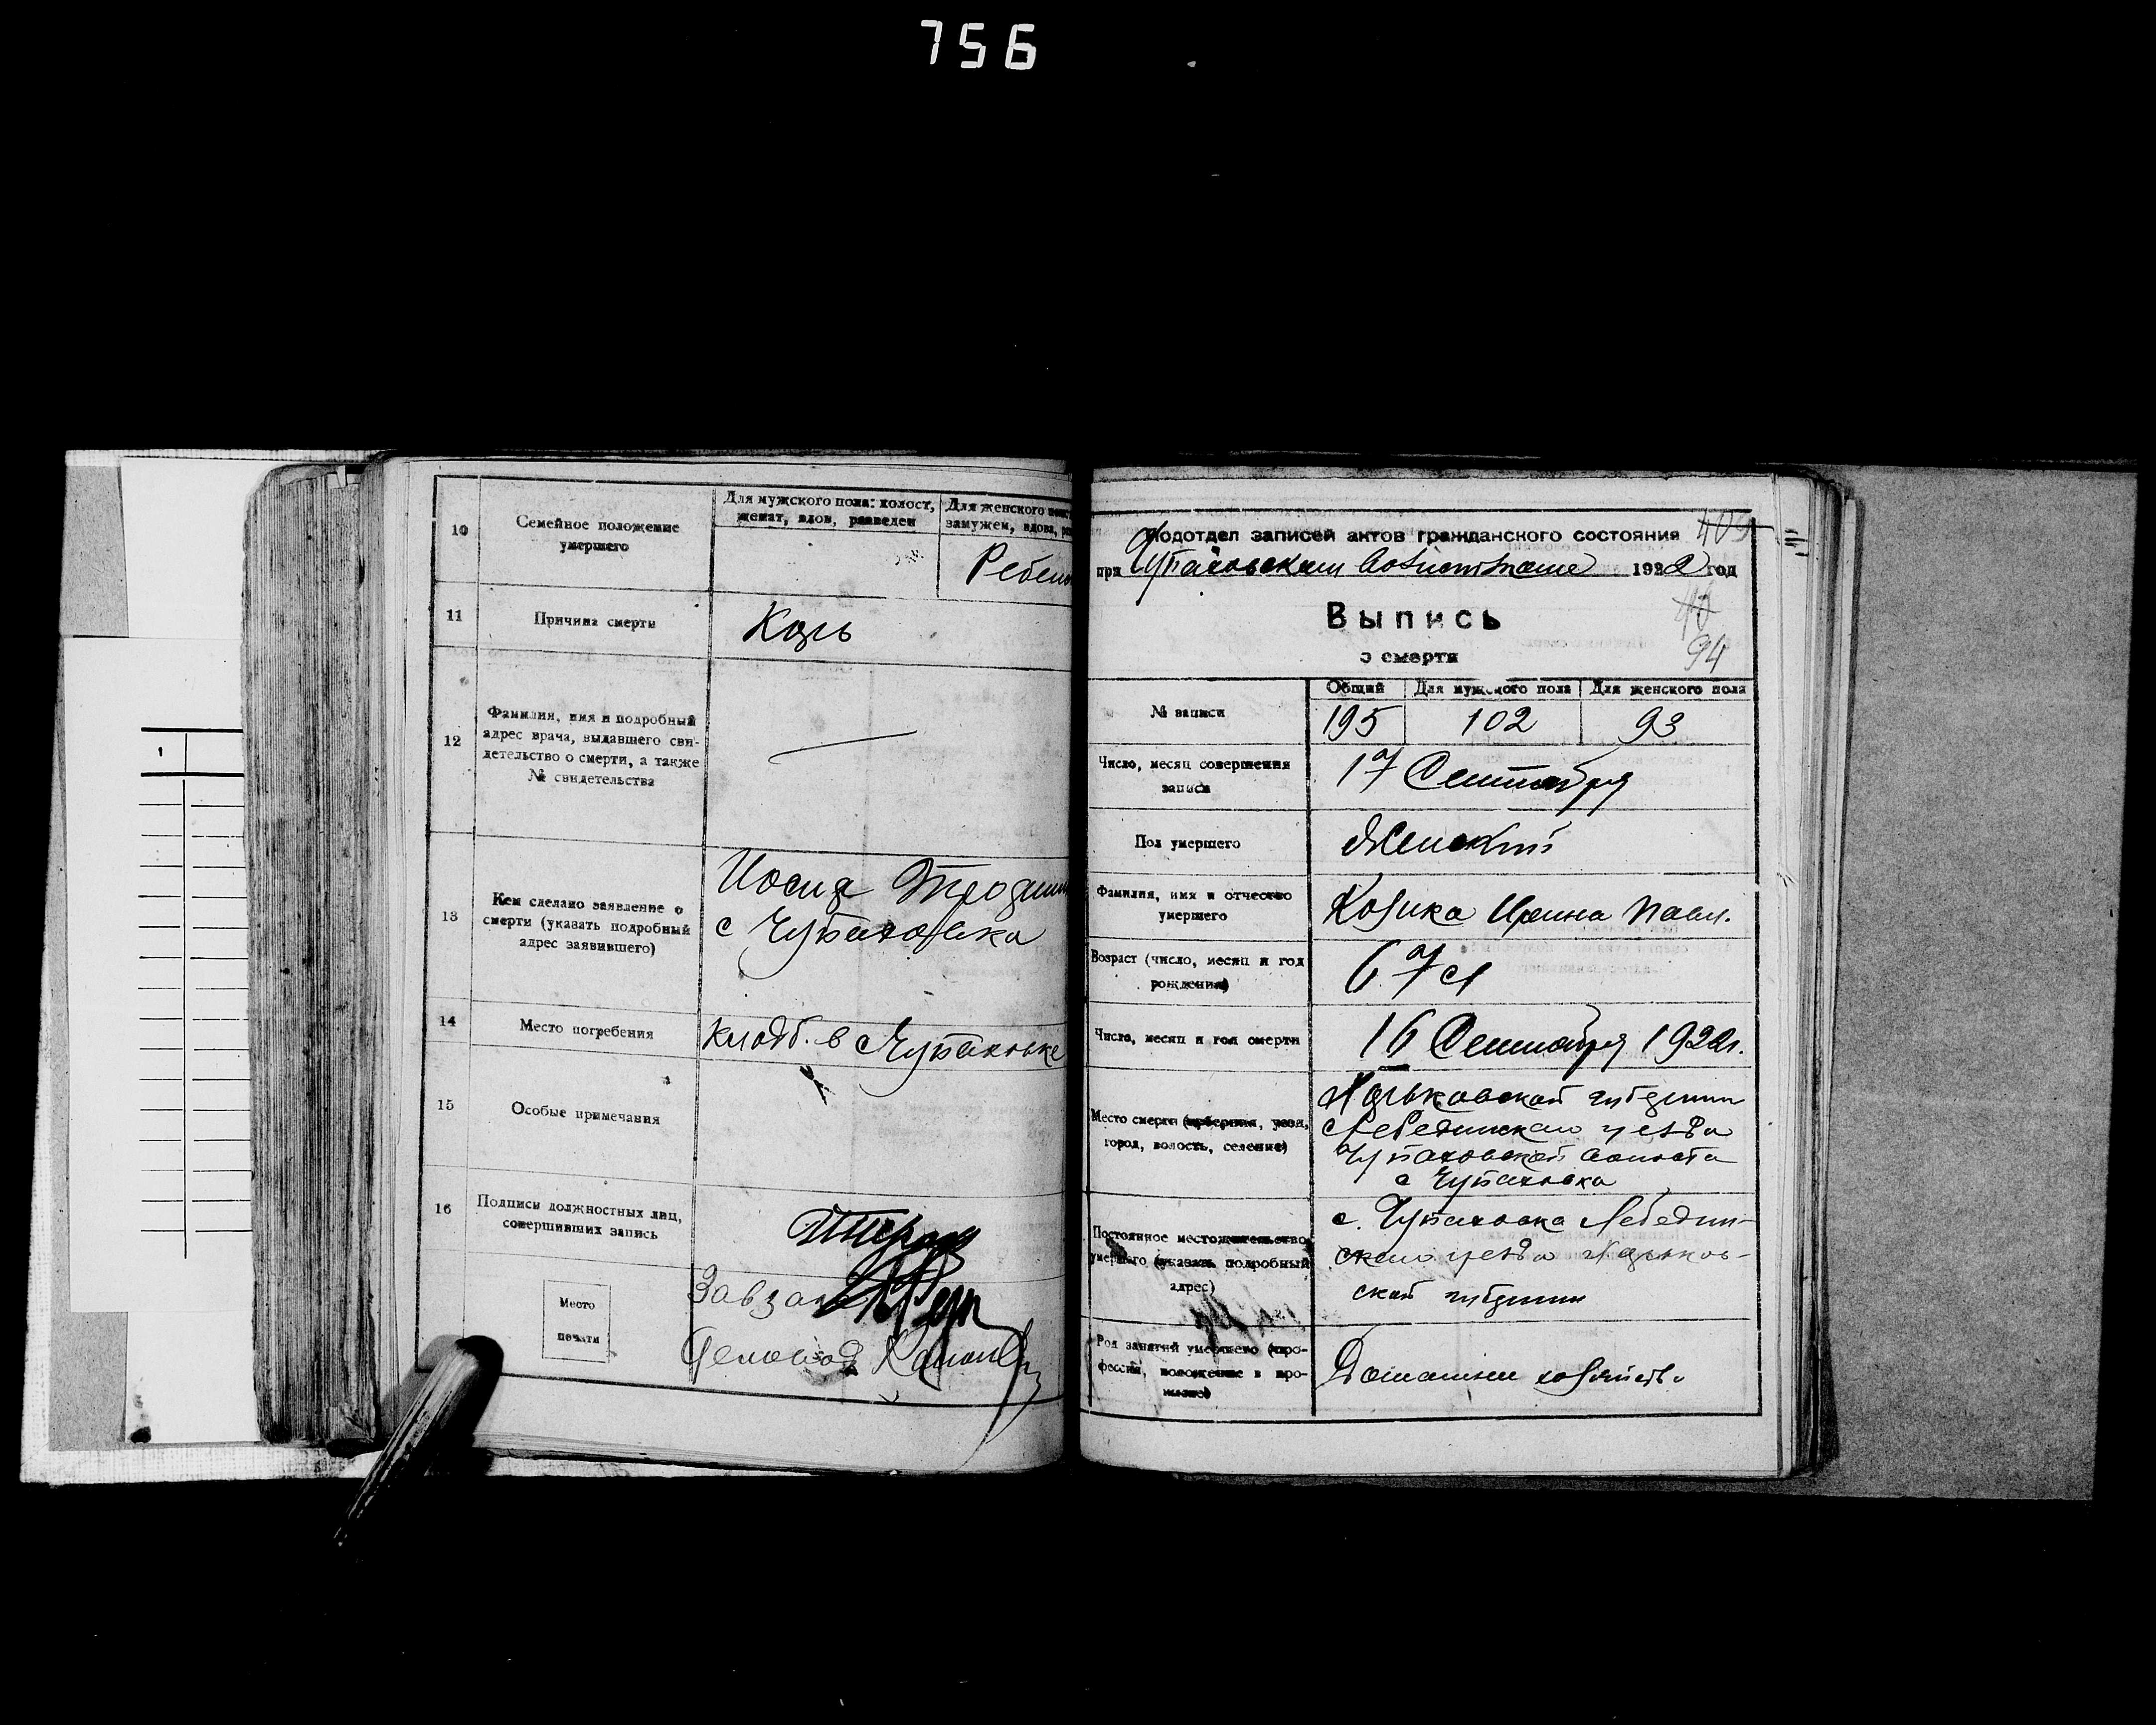 756
10
Семейное положение
умершего
Для мужского пола: холост,
женат, вдов, разведен
Для женского пол
замужем, вдова, раз
Ребено
11
Причина смерти
Корь
12
Фамилия, имя и подробный
адрес врача, выдавшего сви-
детельство о смерти, а также
№ свидетельства
—
13
Кем сделано заявление о
смерти (указать подробный
адрес заявившего)
с Чупаховка
14
Место погребения
кладб. в Чупаховке
15
Особые примечания
16
Подписи должностных лиц,
совершивших запись
Место
печати
Делопод
1
409
Подотдел записей актов гражданского состояния
при Чупаховском Волисполкоме 1922 год
Выпись
о смерти
94
Общий
Для мужского пола
Для женского пола
№ записи
195
102
93
Число, месяц совершения
записи
17 Сентября
Пол умершего
Женский
Фамилия, имя и отчество
умершего
Козика Ирина Павл.
Возраст (число, месяц и год
рождения)
67 л
Число, месяц и год смерти
16 Сентября 1922г.
Место смерти (губерния, уезд,
город, волость, селение)
Харьковской губернии
Лебединскаго уезда
Чупаховской волости
с Чупаховка
Постоянное местожительство
умершего (указать подробный
адрес)
с. Чупаховка Лебедин-
скаго уезда Харьков-
ской губернии
Род занятий умершего (про-
фессия, положение в про-
мысле)
Домашнее хозяйство